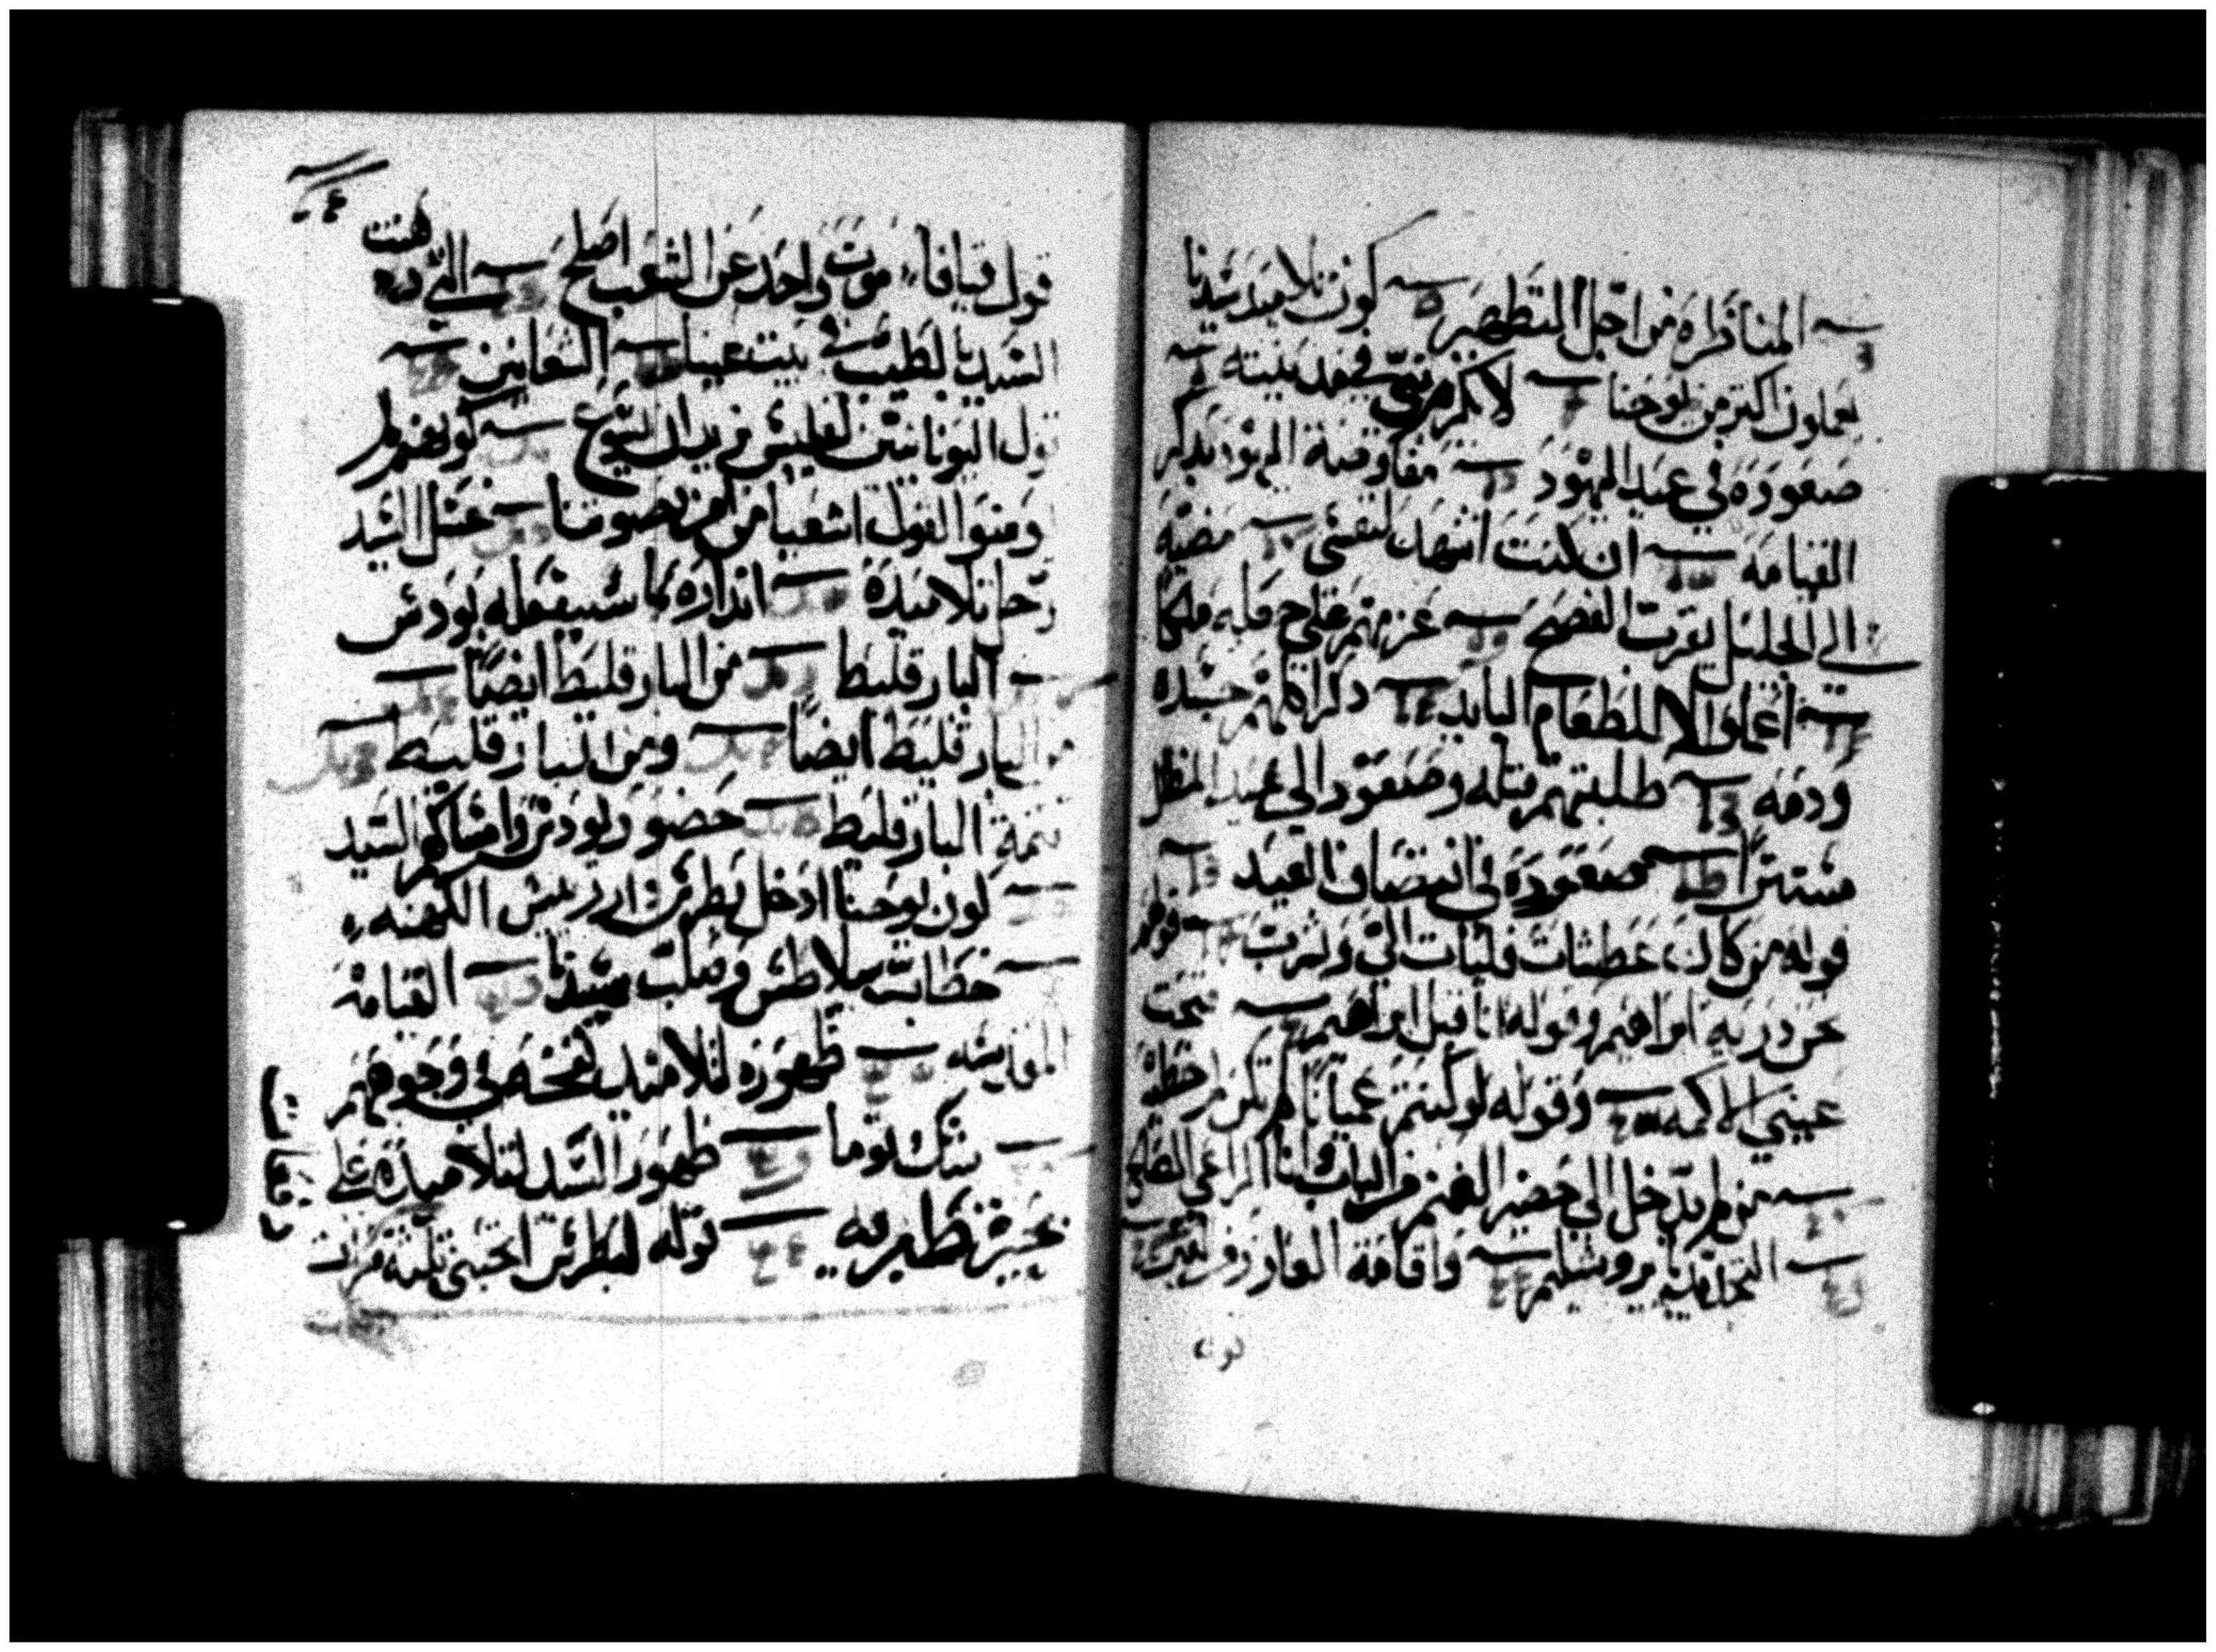 المناظره من اجل التطهير كون تلاميد سيدنا
يعملون اكتر من يوحنا لا يكرم نبي في مدينته
صعوده في عيد اليهود مفاوضة اليهود بدكر
القيامه ان كنت اشهد لنفسي مضيه
الي الجليل بقرب الفصح عزمهم علي جعله ملكا
اعملوا لا للطعام البايد دكر اكلهم جسده
ودمه طلبتهم قتله وصعود الي عيد المظل
مستترا صعوده في انتصاف العيد
قوله من كان عطشان فليات الي ويشرب قولهم
نحن درية ابراهيم وقوله انا قبل ابراهيم فتحت
عيني الاكمه وقوله لو كنتم عميانا لم تكن لكم خطية
من لم يدخل الي حضير الغنم من الباب وانا الراعي الصالح
التجديد بايروشليم واقامة العازر
قول
قول قيافا موت واحد عن الشعب اصلح التي دهنت
السيد بالطيب في بيت عنيا الشعانين
قول اليونانيين لفيلبس نريد ان نري يسوع كونهم لم
يومنوا لقول اشعيا من امن بصوتنا غسل السيد
ارجل تلاميده انداره بما سيفعله يودس
البارقليط من البارقليط ايضا
من البارقليط ايضا ومن البارقليط
تتمة البارقليط حضور يودس وامساكهم السيد
كون يوحنا ادخل بطرس دار رييس الكهنه
خطاب بيلاطس وصلب سيدنا القيامة
المقدسه ظهوره لتلاميد نفخه في وجوههم
شك توما ظهور السيد لتلاميده علي
بحيرة طبريه قوله لبطرس اتحبني تلتة مرات